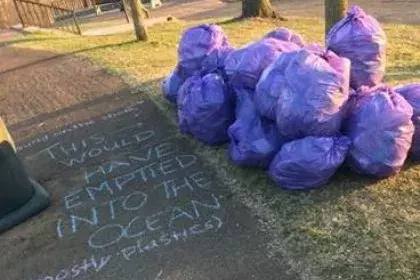 THIS
WOULD
HAVE
EMPTIED
INTO THE
OCEAN
(mostly plastics)